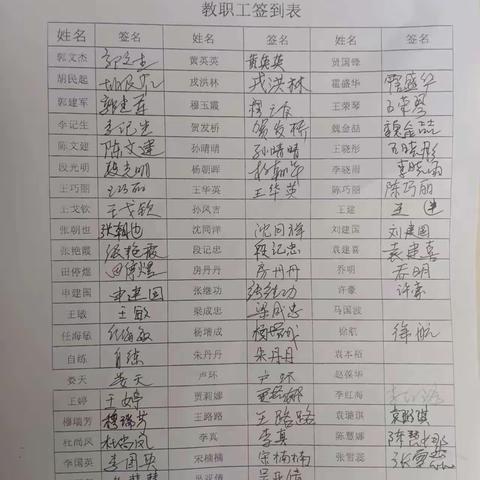 教职工签到表
姓名 签名 姓名 签名 姓名 签名
郭文杰 郭文杰 黄英英 黄英英 贺国锋
胡民起 胡民起 戎洪林 戎洪林 霍盛华 霍盛华
郭建军 郭建军 穆玉霞 王荣琴 王荣琴
李记生 李记生 贺发桥 贺发桥 魏金喆 魏金喆
陈文建 陈文建 孙晴晴 孙晴晴 王晓彤 王晓彤
段光明 段光明 杨朝晖 李晓雨 李晓雨
王巧丽 王巧丽 王华英 王华英 陈巧丽 陈巧丽
王戈钦 王戈钦 孙风吉 王建 王建
张朝也 张朝也 沈同洋 沈同洋 刘建国 刘建国
张艳霞 张艳霞 段记忠 段记忠 袁建喜 袁建喜
田停煜 田停煜 房丹丹 房丹丹 乔明 乔明
申建国 申建国 张继功 张继功 许豪 许豪
王敏 王敏 梁成忠 梁成忠 马国波
任海敏 任海敏 杨增成 杨增成 徐航 徐航
自练 自练 朱丹丹 朱丹丹 袁本裕
娄天 娄天 卢环 卢环 赵葆华
王婷 王婷 贾莉娜 贾莉娜 李红海
穆瑞芳 穆瑞芳 王路路 王路路 袁璐琪 袁璐琪
杜尚风 杜尚风 李真 李真 陈慧娜 陈慧娜
李国英 李国英 宋楠楠 宋楠楠 张雪蕊